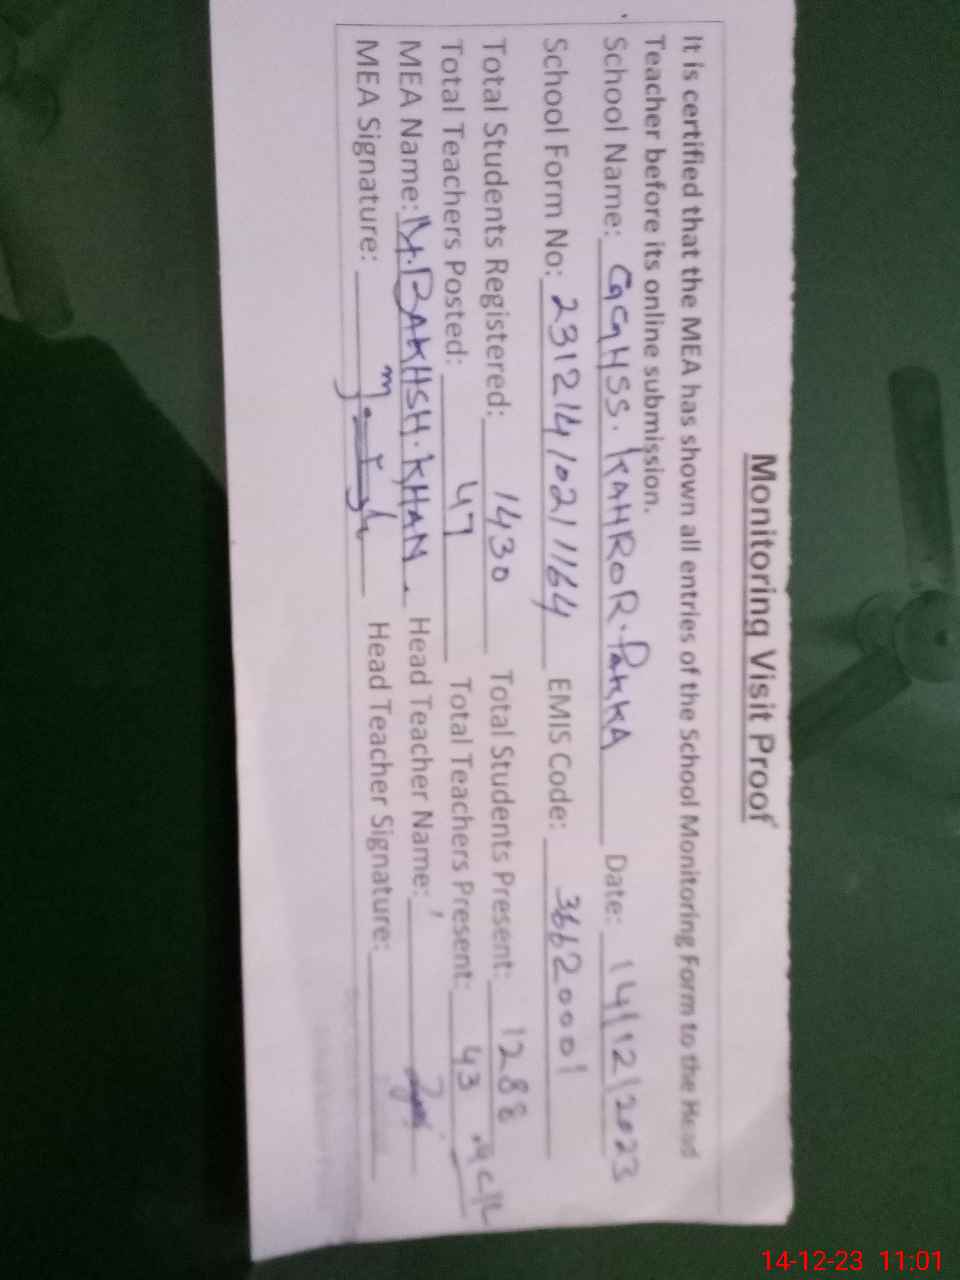 Monitoring Visit Proof
It is certified that the MEA has shown all entries of the School Monitoring Form to the Head
Teacher before its online submission.
School Name: GGHSS. KAHROR. PAKKA Date: 14/12/2023
School Form No: 2312141021164 EMIS Code: 36620001
Total Students Registered: 1430 Total Students Present: 1288
Total Teachers Posted: 47 Total Teachers Present: 43
MEA Name: BAKHSH. KHAN. Head Teacher Name:
MEA Signature: Head Teacher Signature:
14-12-23 11:01